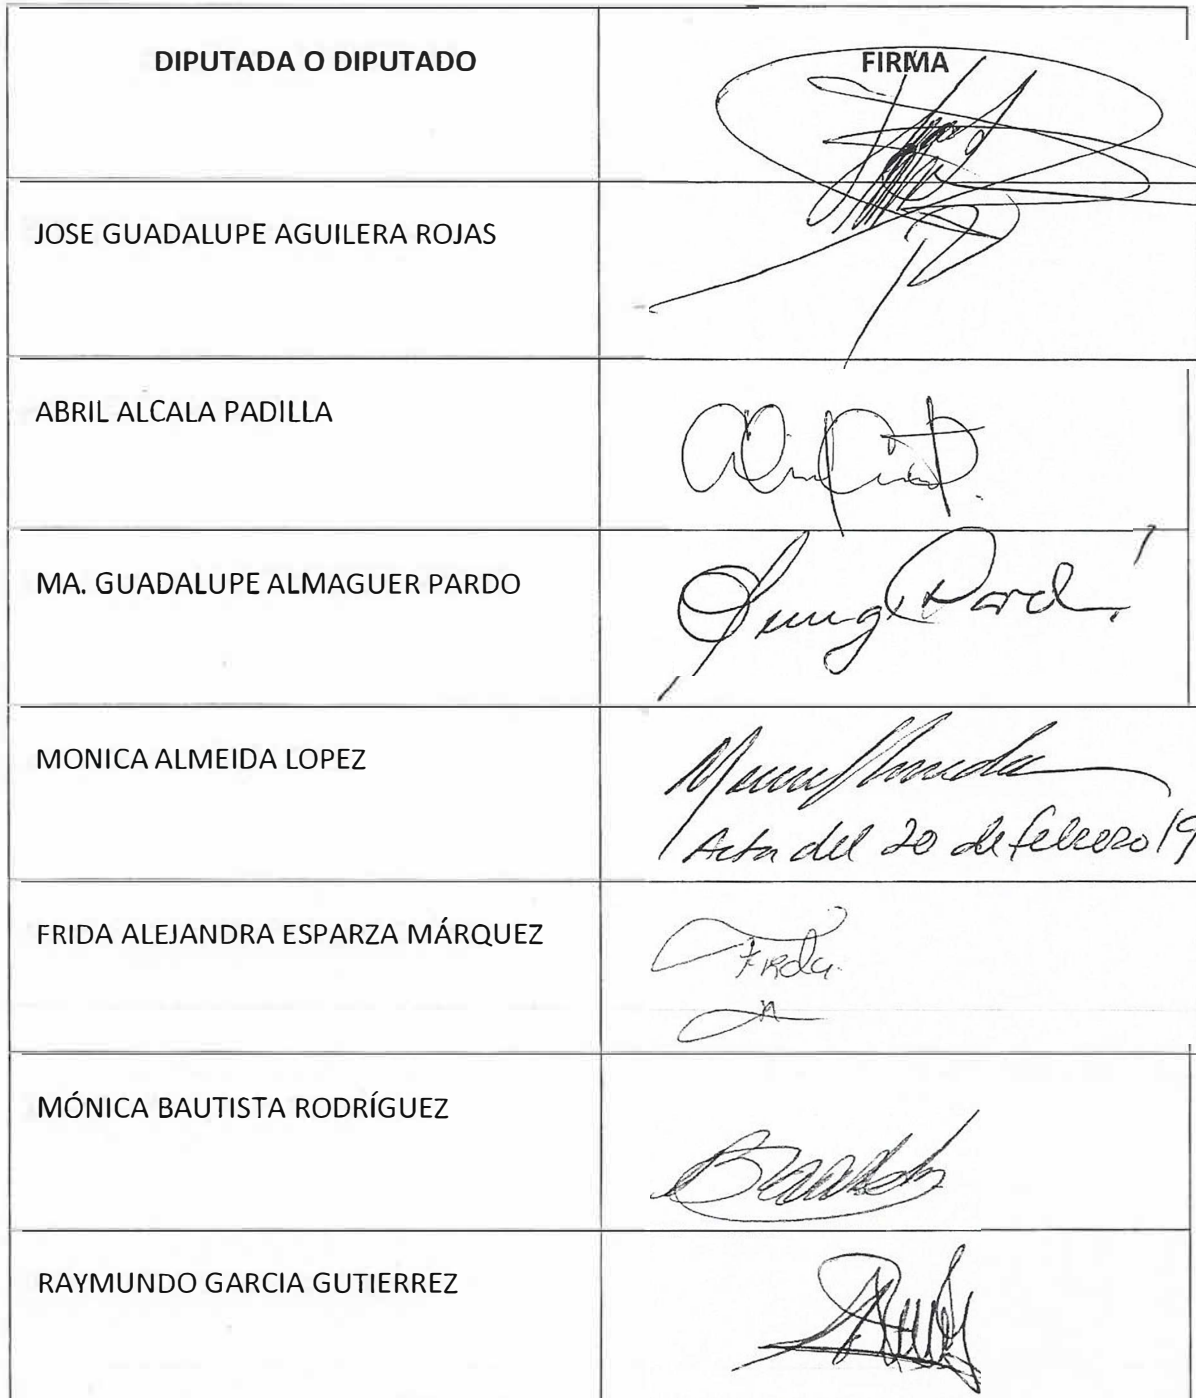 DIPUTADA O DIPUTADO
FIRMA
JOSE GUADALUPE AGUILERA ROJAS
ABRIL ALCALA PADILLA
MA. GUADALUPE ALMAGUER PARDO
MONICA ALMEIDA LOPEZ
Acta del 20 de febrero 19
FRIDA ALEJANDRA ESPARZA MÁRQUEZ
Frida
MÓNICA BAUTISTA RODRÍGUEZ
RAYMUNDO GARCIA GUTIERREZ